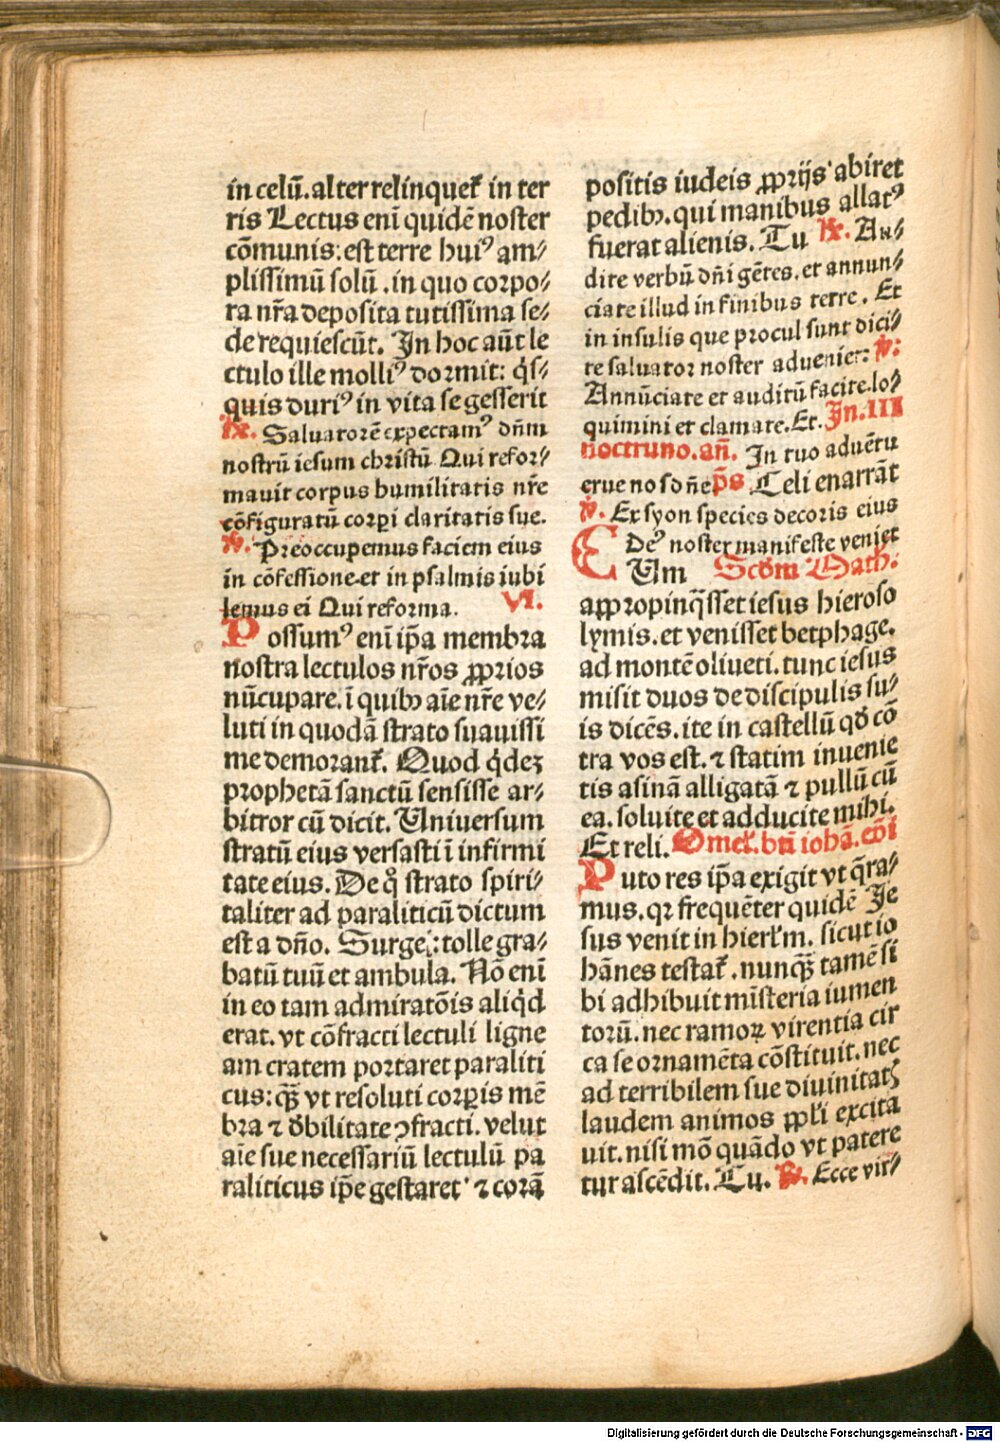 in celū.alter relinqueꝉ in ter
ris Lectus enī quidē noster
cōmunis:est terre huiꝰ am⸗
plissimū solū .in quo corpo⸗
ra nr̄a deposita tutissima se⸗
de requiescūt. In hoc aūt le
ctulo ille molliꝰ dormit: q̇s⸗
quis duriꝰ in vita se gesserit
℟. Saluatorē expectamꝰ dn̄m
nostrū iesum christū Qui refor⸗
mauit corpus humilitatis nr̄e
cōfiguratū corꝑi claritatis sue.
℣. Preoccupemus faciem eius
in cōfessione.et in psalmis iubi
lemus ei Qui reforma. VI.
Possumꝰ enī ip̄a membra
nostra lectulos nr̄os ꝓprios
nūcupare. ī quibꝫ aīe nr̄e ve⸗
luti in quodā strato suauissi
me demoranꝉ. Quod q̇dez
prophetā sanctū sensisse ar⸗
bitror cū dicit. Uniuersum
stratū eius versasti ī infirmi
tate eius. De q̊ strato spiri⸗
taliter ad paraliticū dictum
est a dn̄o. Surge:tolle gra⸗
batū tuū et ambula. Nō enī
in eo tam admiratōis aliq̇d
erat. vt cōfracti lectuli ligne
am cratem portaret paraliti
cus:qꝫ̄ vt resoluti corꝑis mē
bra ⁊ d̄bilitate ꝯfracti. velut
aīe sue necessariū lectulū pa
raliticus ip̄e gestaret ⁊ corā
positis iudeis ꝓprijs abiret
pedibꝫ.qui manibus allatꝰ
fuerat alienis. Tu ℟. Au⸗
dite verbū dn̄i gētes. et annun⸗
ciate illud in finibus terre. Et
in insulis que procul sunt dici⸗
te saluator noster adueniet: ℣:
Annūciate et auditū facite.lo⸗
quimini et clamate. Et. In. III
nocturno. an̄. In tuo aduētu
erue nos dn̄e p̄s Celi enarrāt
℣. Ex syon species decoris eius
Deꝰ noster manifeste veniet
CUm Scd̄m Math:
appropinq̄sset iesus hieroso
lymis. et venisset betphage.
ad montē oliueti. tunc iesus
misit duos de discipulis su⸗
is dicēs. ite in castellū qd̄ cō
tra vos est. ⁊ statim inuenie
tis asinā alligatā ⁊ pullū cū
ea. soluite et adducite mihi.
Et reli. Omel̄. bt̄i iohā. ep̄i
Puto res ip̄a exigit vt q̄ra⸗
mus. qꝛ frequēter quidē Je
sus venit in hierl̄m. sicut io
hānes testaꝉ. nunqꝫ̄ tamē si
bi adhibuit mīsteria iumen
torū. nec ramoꝝ virentia cir
ca se ornamēta cōstituit. nec
ad terribilem sue diuinitatꝭ
laudem animos ppl̄i excita
uit. nisi mō quādo vt patere
tur ascēdit. Tu. ℟. Ecce vir⸗
Digitalisierung gefördert durch die Deutsche Forschungsgemeinschaft - DFG